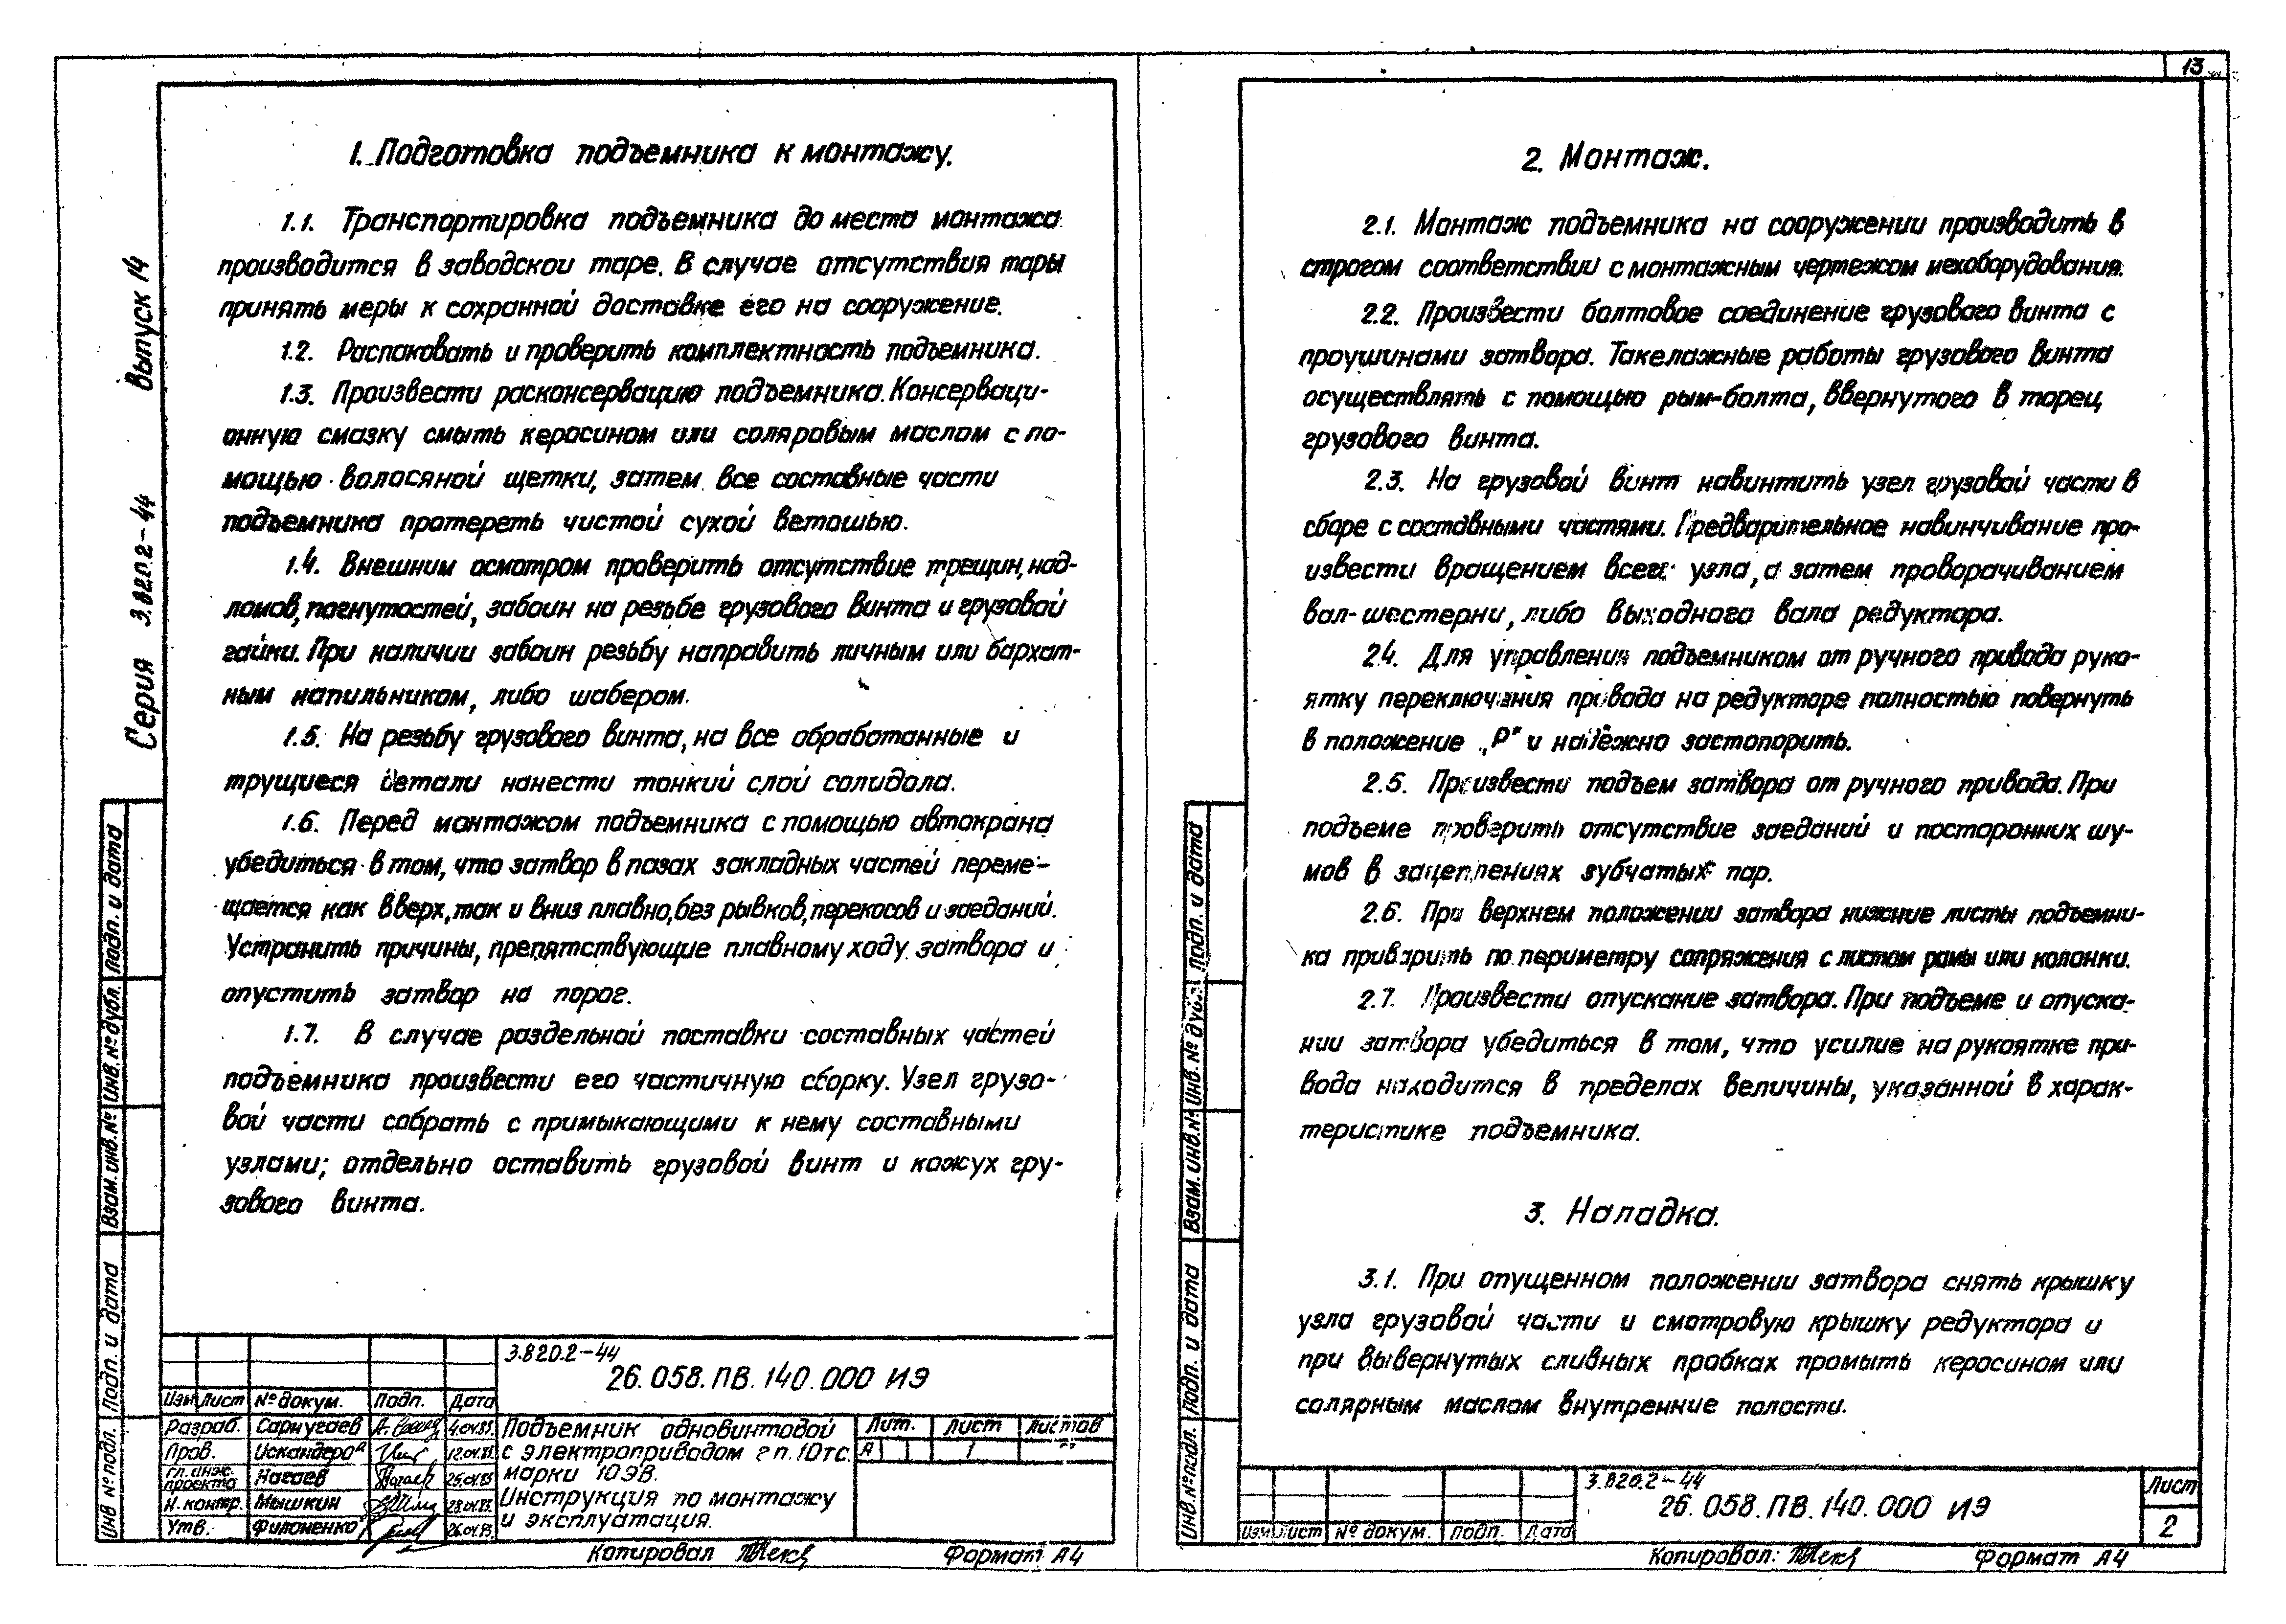 13
1. Подготовка подъемника к монтажу.
1.1. Транспортировка подъемника до места монтажа
производится в заводской таре. В случае отсутствия тары
принять меры к сохранной доставке его на сооружение.
1.2. Распаковать и проверить комплектность подъемника.
1.3. Произвести расконсервацию подъемника. Консерваци-
онную смазку смыть керосином или соляровым маслом с по-
мощью волосяной щетки, затем все составные части
подъемника протереть чистой сухой ветошью.
1.4. Внешним осмотром проверить отсутствие трещин, над-
ломов, погнутостей, забоин на резьбе грузового винта и грузовой
гайки. При наличии забоин резьбу направить личным или бархат-
ным напильником, либо шабером.
1.5. На резьбу грузового винта, на все обработанные и
трущиеся детали нанести тонкий слой солидола.
1.6. Перед монтажом подъемника с помощью автокрана
убедиться в том, что затвор в пазах закладных частей переме-
щается как вверх, так и вниз плавно, без рывков, перекосов и заеданий.
Устранить причины, препятствующие плавному ходу затвора и
опустить затвор на порог.
1.7. В случае раздельной поставки составных частей
подъемника произвести его частичную сборку. Узел грузо-
вой части собрать с примыкающими к нему составными
узлами; отдельно оставить грузовой винт и кожух гру-
зового винта.
Серия 3.820.2-44 Выпуск 14
Подп. и дата
Инв. № дубл.
Взам. инв. №
Подп. и дата
Инв № подл.
3.820.2-44
26.058.ПВ.140.000 ИЭ
Изм Лист № докум. Подп. Дата
Разраб. Сарнугаев 4.04.83.
Пров. Искандеров 12.04.83
гл. инж. проекта Нагаев 25.04.83
Н. контр. Мышкин 28.04.83
Утв. Филоненко 26.04.83
Подъемник одновинтовой
с электроприводом г п. 10тс.
марки 10ЭВ.
Инструкция по монтажу
и эксплуатация.
Лит. Лист Листов
А 1
Копировал
Формат А4
2. Монтаж.
2.1. Монтаж подъемника на сооружении производить в
строгом соответствии с монтажным чертежом мехоборудования.
2.2. Произвести болтовое соединение грузового винта с
проушинами затвора. Такелажные работы грузового винта
осуществлять с помощью рым-болта, ввернутого в торец
грузового винта.
2.3. На грузовой винт навинтить узел грузовой части в
сборе с составными частями. Предварительное навинчивание про-
извести вращением всего узла, а затем проворачиванием
вал-шестерни, либо выходного вала редуктора.
2.4. Для управления подъемником от ручного привода руко-
ятку переключения привода на редукторе полностью повернуть
в положение „Р" и надёжно застопорить.
2.5. Произвести подъем затвора от ручного привода. При
подъеме проверить отсутствие заеданий и посторонних шу-
мов в зацеплениях зубчатых пар.
2.6. При верхнем положении затвора нижние листы подъемни-
ка приварить по периметру сопряжения с листом рамы или колонки.
2.7. Произвести опускание затвора. При подъеме и опуска-
нии затвора убедиться в том, что усилие на рукоятке при-
вода находится в пределах величины, указанной в харак-
теристике подъемника.
3. Наладка.
3.1. При опущенном положении затвора снять крышку
узла грузовой части и смотровую крышку редуктора и
при вывернутых сливных пробках промыть керосином или
солярным маслом внутренние полости.
Подп. и дата
Инв. № дубл.
Взам. инв. №
Подп. и дата
Инв. № подл.
3.820.2-44
26.058.ПВ.140.000 ИЭ
Изм Лист № докум. Подп. Дата
Лист
2
Копировал:
Формат А4